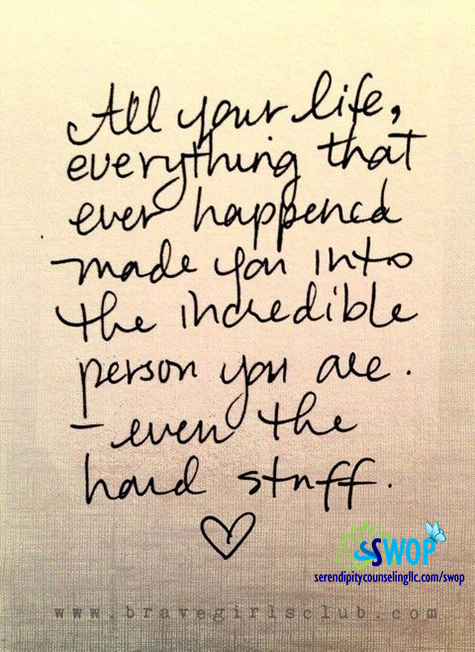 All your life,
everything that
ever happened
made you into
the incredible
person you are.
- even the
hard stuff.
SWOP
serendipitycounselingllc.com/swop
www.bravegirlsclub.com